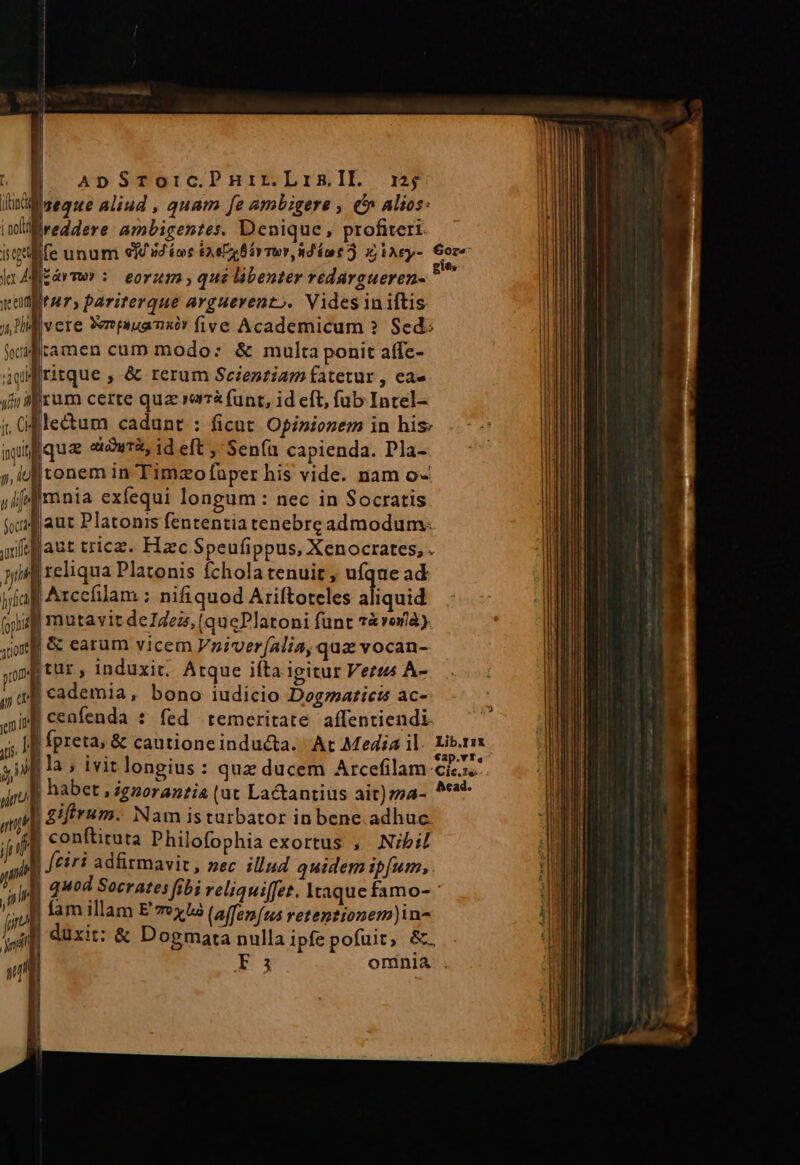 AD STOIC. PHIL. LIB. II. 125
neque aliud, quam ſe ambigere, & alios
reddere ambigentes. Denique, profiteri
ſe unum
eorum, qui libenter redargueren-
tur, pariterque arguerent. Vides in iſtis
vere ſive Academicum? Sed
tamen cum modo: & multa ponit aſſe-
ritque, & rerum Scientiam fatetur, ea-
rum certe quæ νοητὰ ſunt, id eſt, ſub Intel-
lectum cadunt: ſicut Opinionem in his
quæ αἰσθητὰ, id eſt, Senſu capienda. Pla-
tonem in Timæo ſuper his vide. nam o-
mnia exſequi longum: nec in Socratis
aut Platonis ſententia tenebræ admodum
aut tricæ. Hæc Speuſippus, Xenocrates,
reliqua Platonis ſchola tenuit, uſque ad
Arceſilam: niſi quod Ariſtoteles aliquid
mutavit de Ideis, (quæ Platoni ſunt τὰ νοητὰ)
& earum vicem Vniverſalia, quæ vocan-
tur, induxit. Atque iſta igitur Vetus A-
cademia, bono iudicio Dogmaticis ac-
cenſenda: ſed temeritate aſſentiendi
ſpreta, & cautione inducta. At Media il-
la, ivit longius: quæ ducem Arceſilam
habet, ignorantiæ (ut Lactantius ait) ma-
giſtrum. Nam is turbator in bene adhuc
conſtituta Philoſophia exortus, Nihil
ſciri adfirmavit, nec illud quidem ipſum,
quod Socrates ſibi reliquiſſet. Itaque famo-
ſam illam Ἐποχὴν (aſſenſus retentionem) in-
duxit: & Dogmata nulla ipſe poſuit, &
F 3 omnia
Gor-
giæ,
Lib. III
cap. VI.
Cic. 1.
Acad.